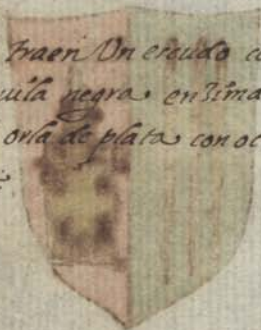 traen Un escudo
uila negra enzima
orla de plata con oc